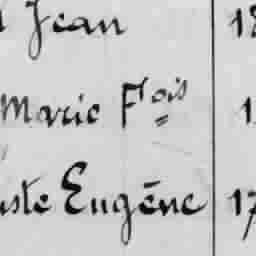 Jean 18
Marie Fois 1
uste Eugène 17